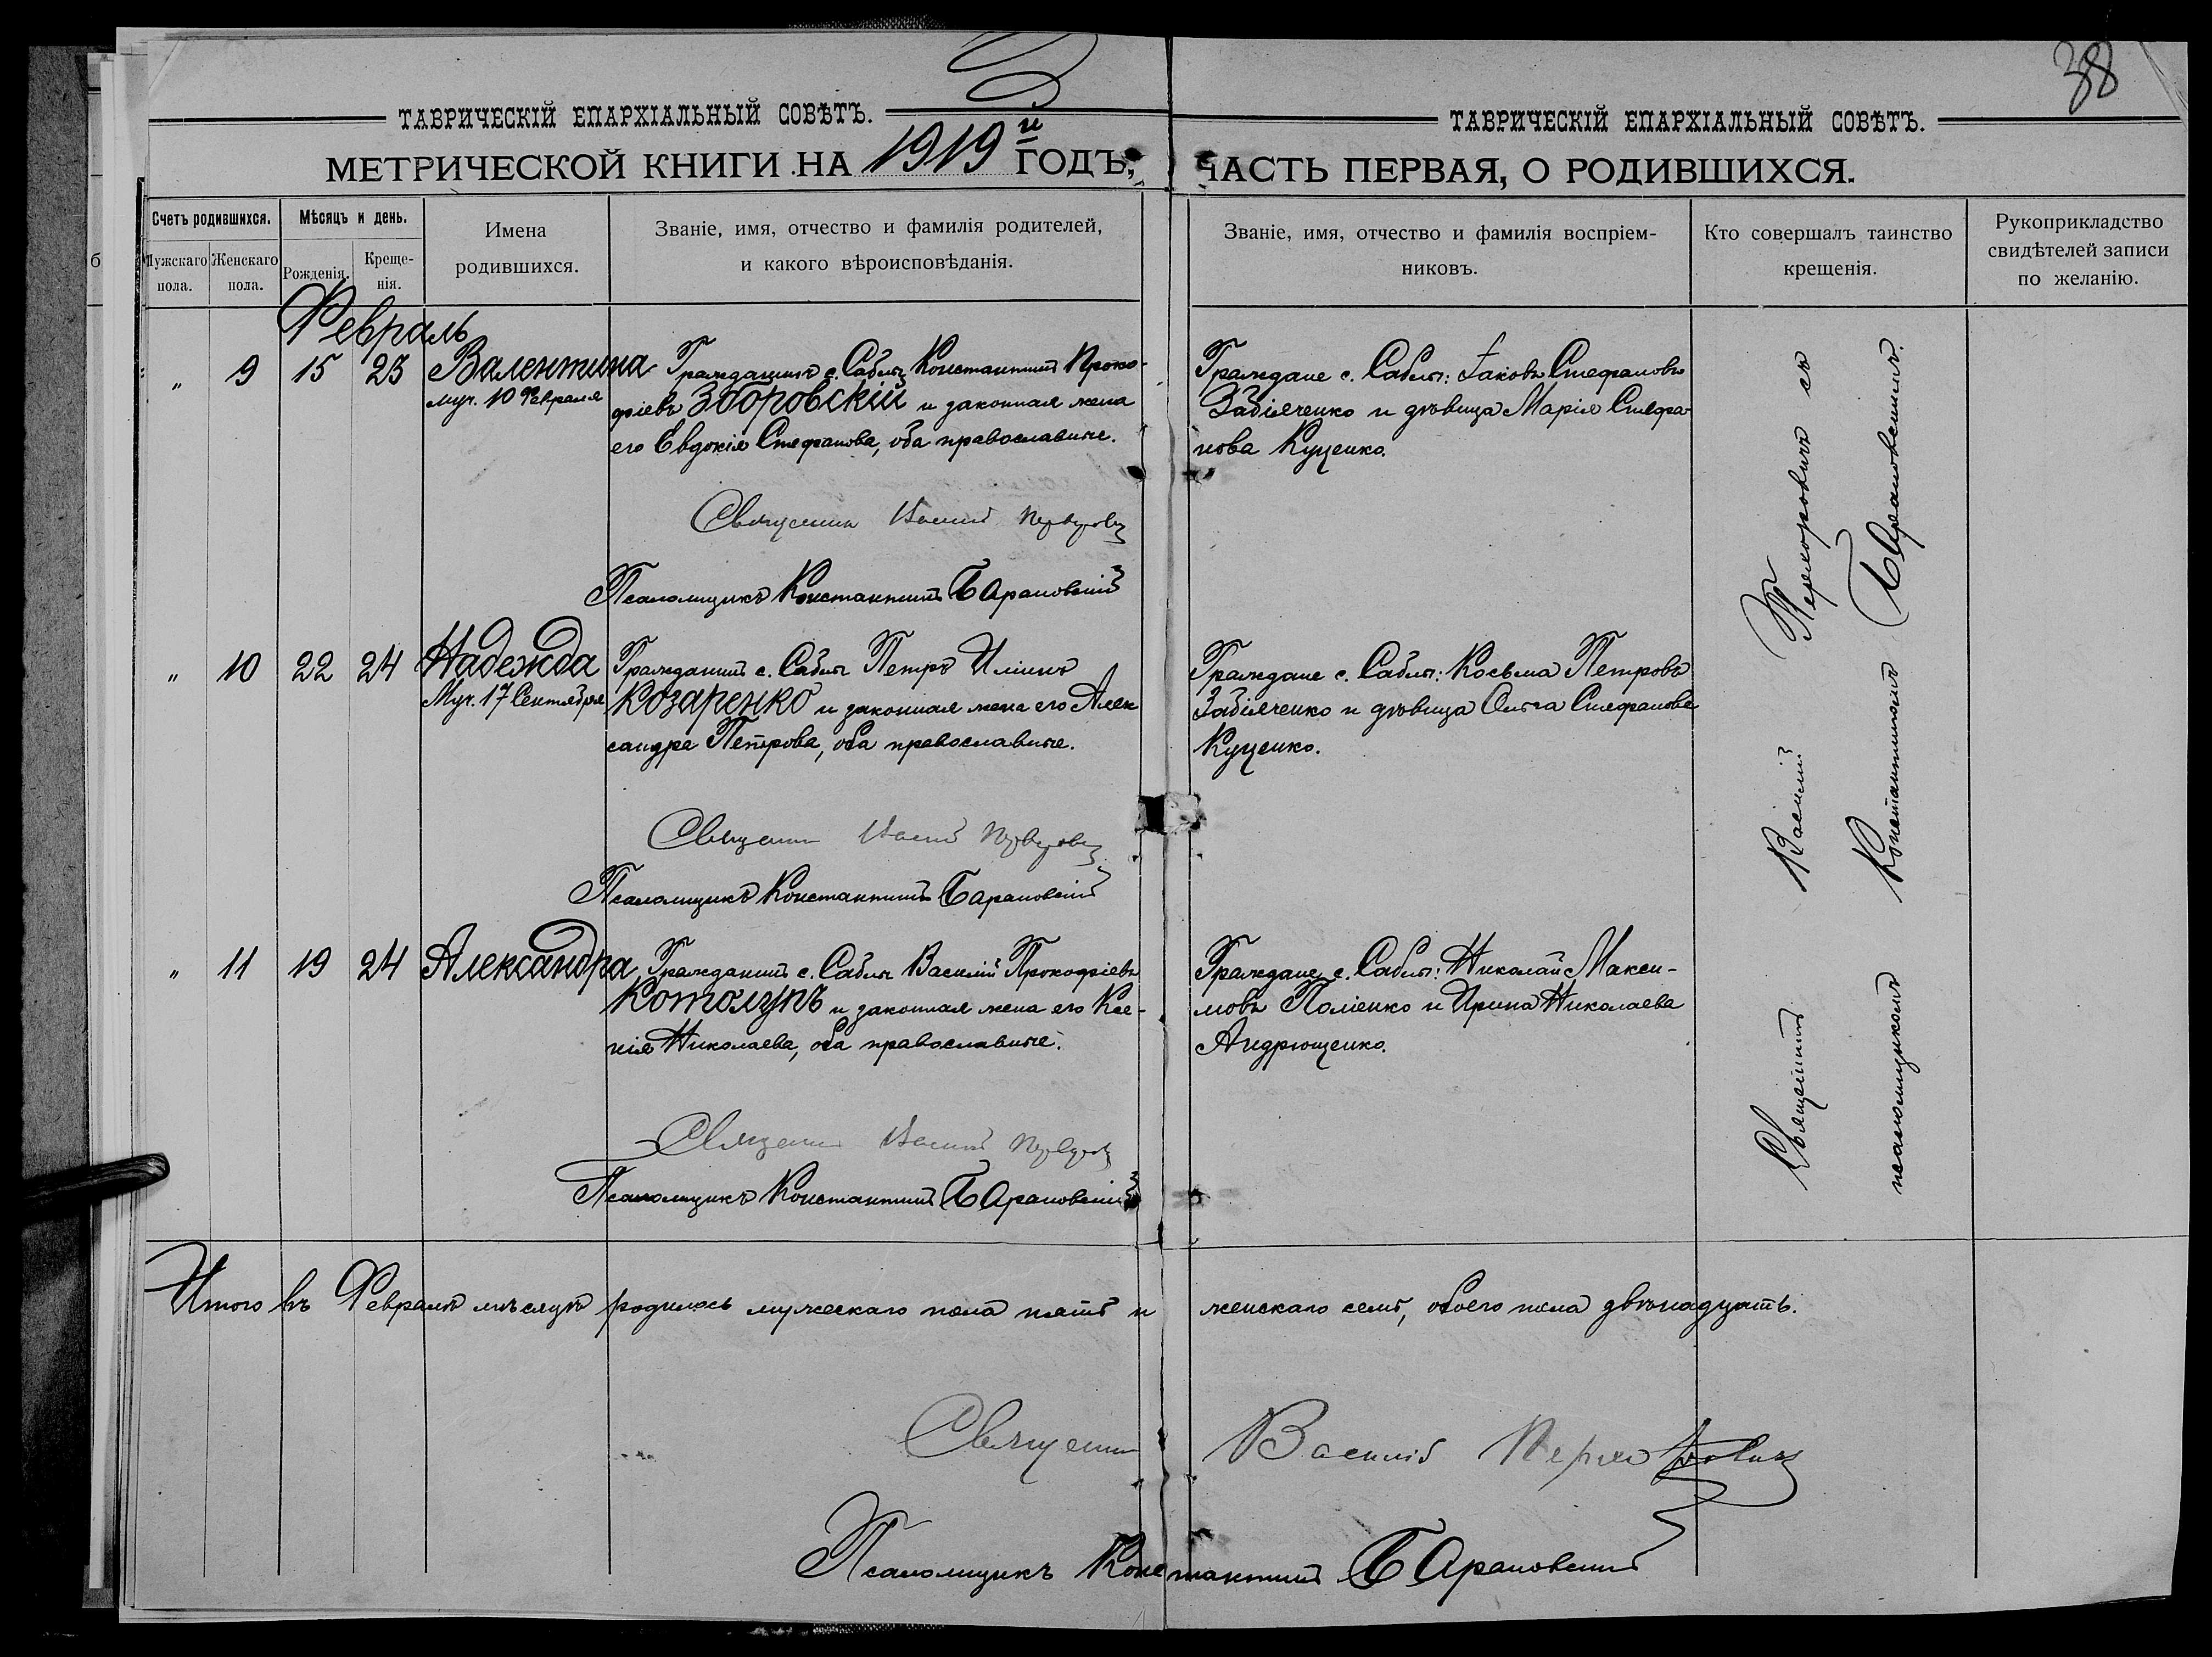 38
ТАВРИЧЕСКІЙ ЕПАРХІАЛЬНЫЙ СОВѢТЪ.
МЕТРИЧЕСКОЙ КНИГИ НА 1919й ГОДЪ,
ТАВРИЧЕСКІЙ ЕПАРХІАЛЬНЫЙ СОВѢТЪ.
ЧАСТЬ ПЕРВАЯ, О РОДИВШИХСЯ.
Счетъ родившихся.
Мужскаго пола.
Женскаго пола.
Мѣсяцъ и день.
Рожденія.
Креще-
нія.
Имена
родившихся.
Званіе, имя, отчество и фамилія родителей,
и какого вѣроисповѣданія.
Званіе, имя, отчество и фамилія воспріем-
никовъ.
Кто совершалъ таинство
крещенія.
Рукоприкладство
свидѣтелей записи
по желанію.
Февраль
" 9 15 23 Валентина
муч. 10 Февраля
Гражданинъ с. Саблы Константинъ Проко-
фіевъ Зборовскій и законная жена
его Евдокія Стефанова, оба православные.
Граждане с. Саблы: Іаковъ Стефановъ
Забіяченко и дѣвица Марія Стефа-
нова Куценко.
Священникъ Василій
Псаломщикъ Константинъ Барановскій
" 10 22 24 Надежда
Муч. 17 Сентября
Гражданинъ с. Саблы Петръ Иліинъ
Козаренко и законная жена его Алек
сандра Петрова, оба православные.
Граждане с. Саблы: Косьма Петровъ
Забіяченко и дѣвица Ольга Стефанова
Куценко.
Священникъ Василій
Псаломщикъ Константинъ Барановскій
" 11 19 24 Александра
Гражданинъ с. Саблы Василій Прокофіевъ
Котолупъ и законная жена его Ксе-
нія Николаева, оба православные.
Граждане с. Саблы: Николай Макси-
мовъ Поліенко и Ирина Николаева
Андрющенко.
Священникъ Василій
Псаломщикъ Константинъ Барановскій
Священникъ Василій Перхоровичъ съ
псаломщикомъ Константиномъ Барановскимъ.
Итого въ Февралѣ мѣсяцѣ родилось мужескаго пола пять и женскаго семь, обоего пола двѣнадцать.
Священникъ Василій Перхоровичъ
Псаломщикъ Константинъ Барановскій